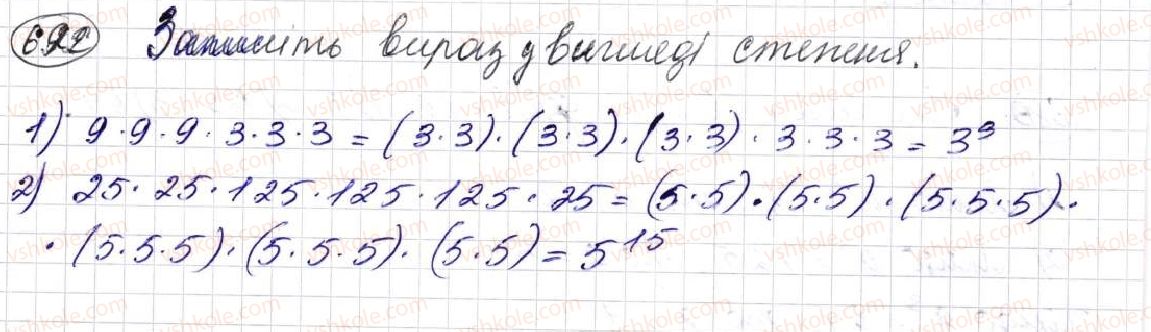 692 Запишіть вираз у вигляді степеня.
1) 9·9·9·3·3·3 = (3·3)·(3·3)·(3·3)·3·3·3 = 3⁹
2) 25·25·125·125·125·25 = (5·5)·(5·5)·(5·5·5)·
·(5·5·5)·(5·5·5)·(5·5) = 5¹⁵
vshkole.com